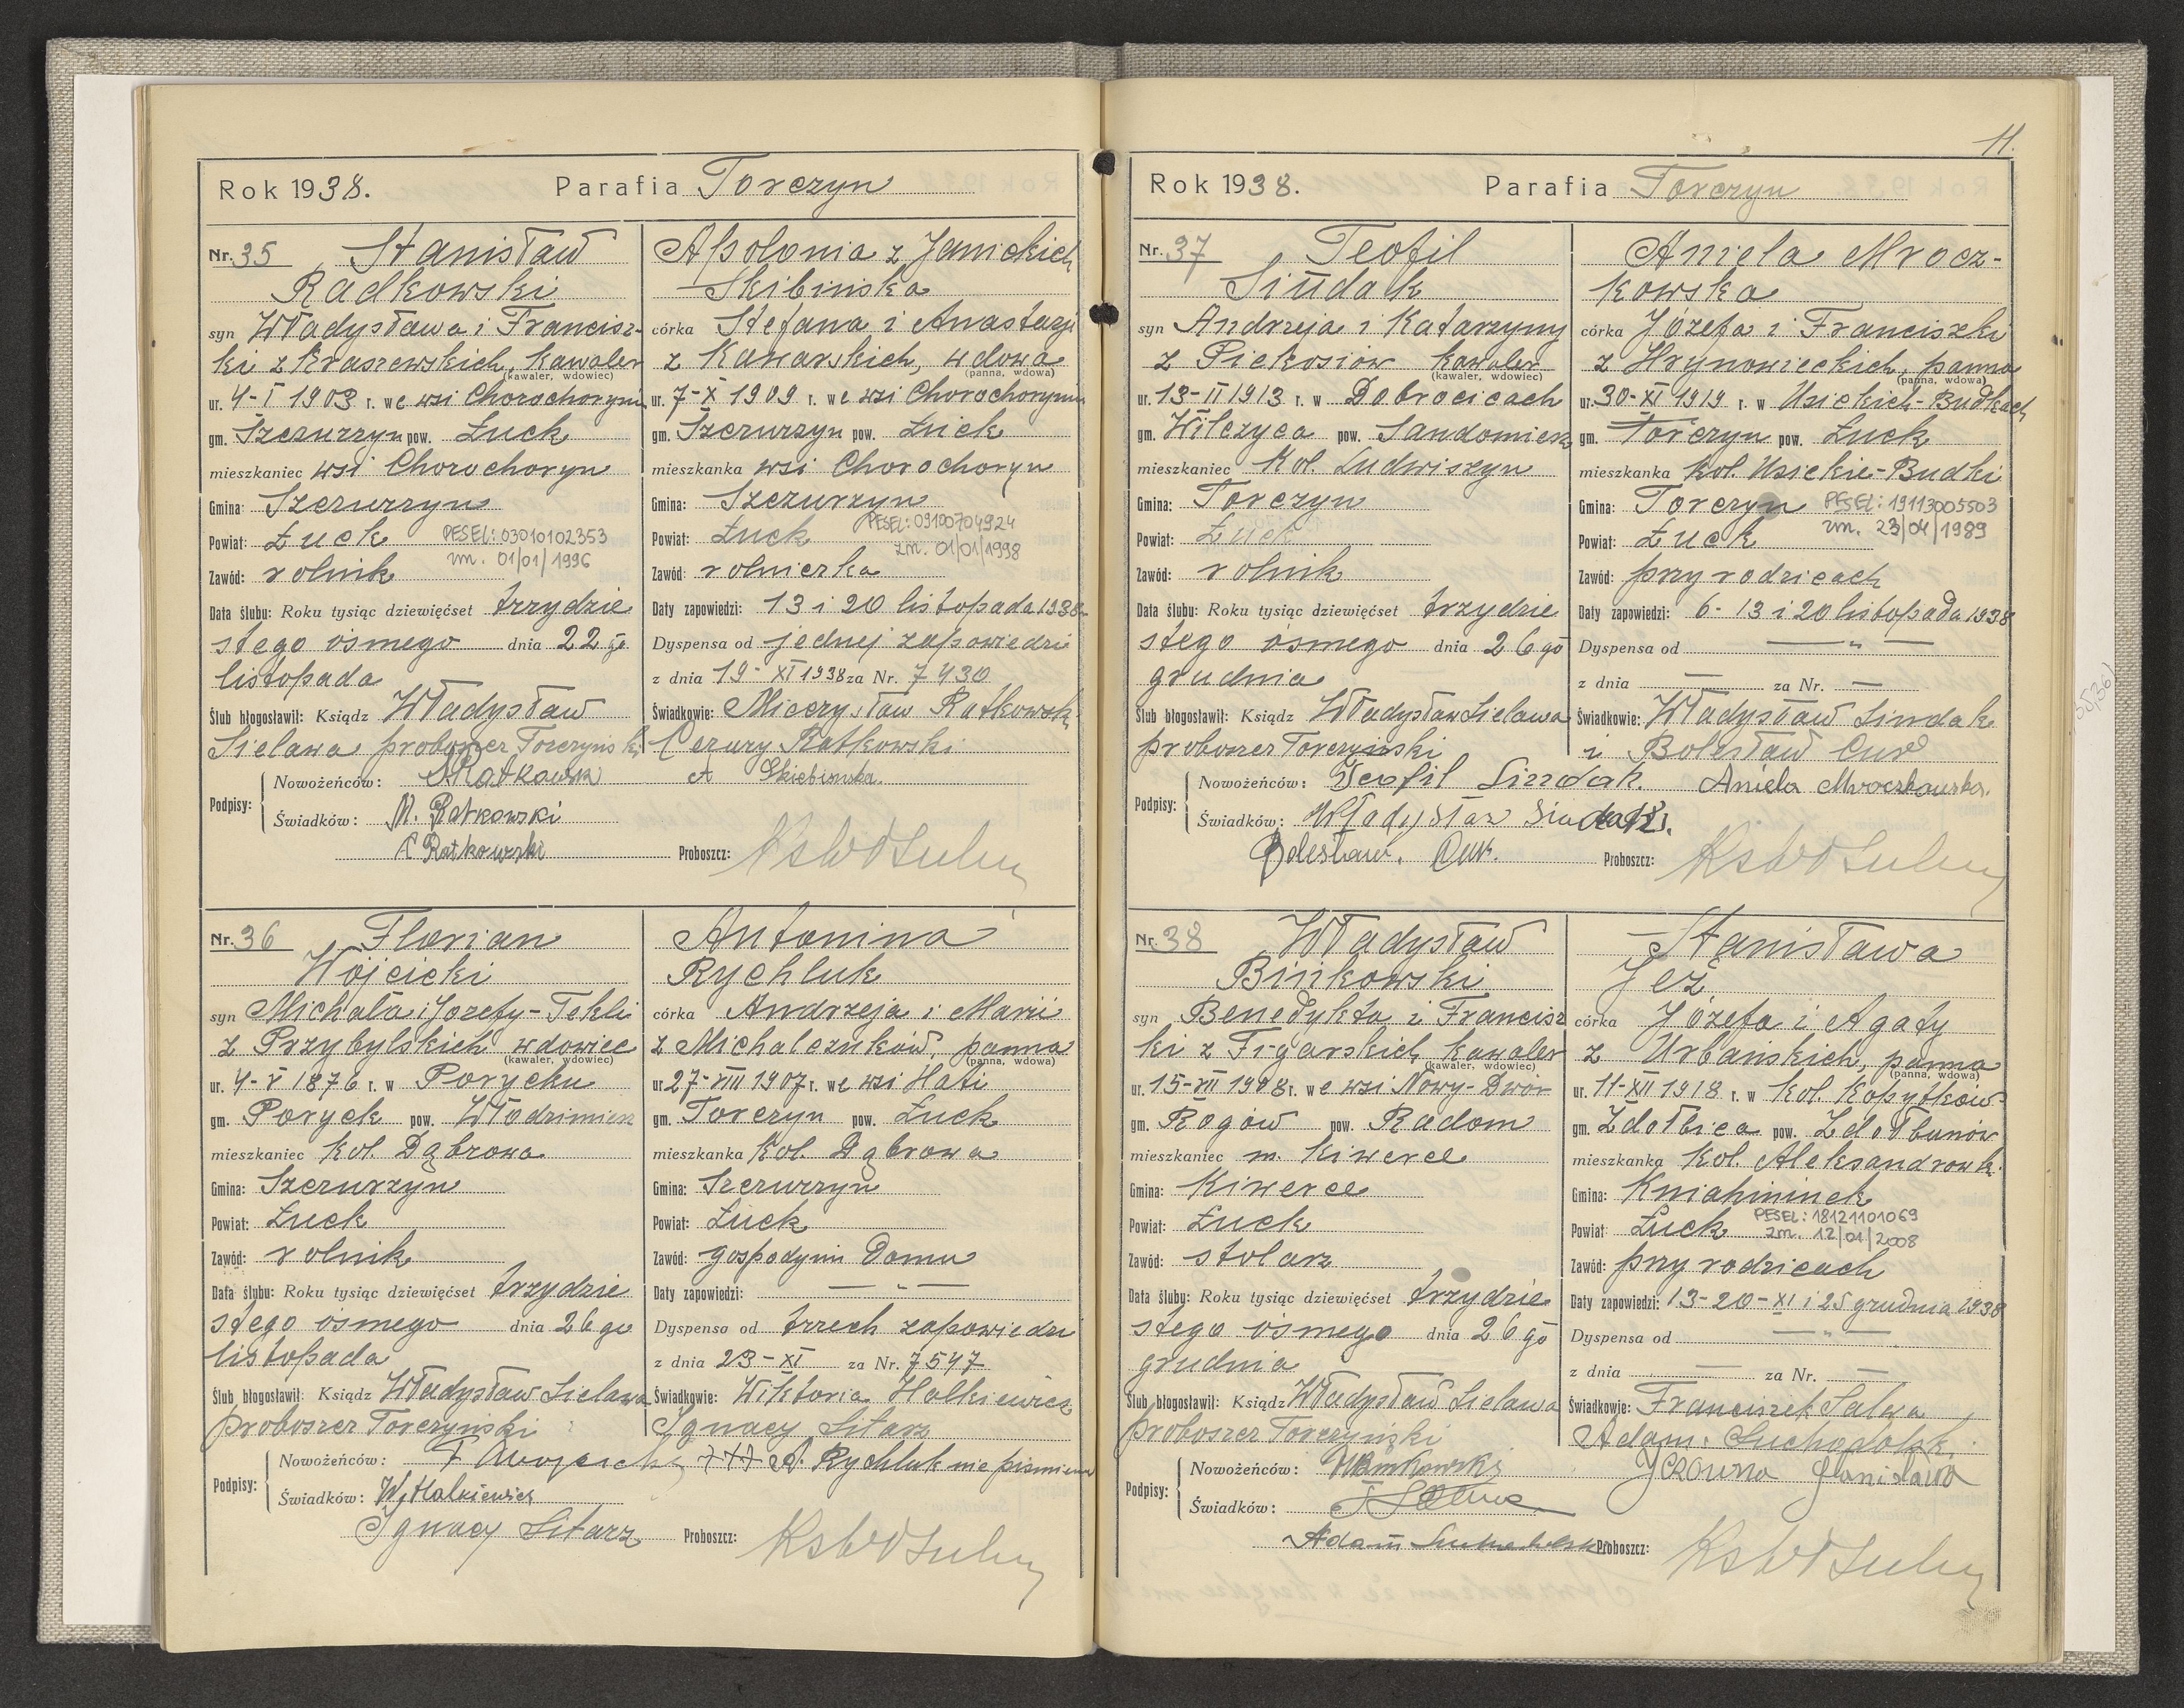 Rok 1938. Parafia Torczyn
Nr. 35 Stanisław
Radkowski
syn Władysława i Francisz-
ki z Kraszewskich, kawaler
(kawaler, wdowiec)
ur. 4-I 1903 r. we wsi Chorochoryniu
gm. Szczurzyn pow. Łuck
mieszkaniec wsi Chorochoryn
Gmina: Szczurzyn
Powiat: Łuck PESEL: 03010102353
zm. 01/01/1996
Zawód: rolnik
Data ślubu: Roku tysiąc dziewięćset trzydzie
stego ósmego dnia 22 go
listopada
Ślub błogosławił: Ksiądz Władysław
Sielawa proboszcz Torczyński
Apolonia z Janickich
Skibinska
córka Stefana i Anastazji
z Kanarskich, wdowa
(panna, wdowa)
ur. 7-X 1909 r. we wsi Chorochoryniu
gm. Szczurzyn pow. Łuck
mieszkanka wsi Chorochoryn
Gmina: Szczurzyn
PESEL: 09100704924
Powiat: Łuck zm. 01/01/1998
Zawód: rolniczka
Daty zapowiedzi: 13 i 20 listopada 1938
Dyspensa od jednej zapowiedzi
z dnia 19-XI 1938 za Nr. 7430
Świadkowie: Mieczysław Ratkowski
Cezary Ratkowski
Podpisy: Nowożeńców: Ratkowski A Skibinska
Świadków: M. Ratkowski
C Ratkowski Proboszcz:
Nr. 36 Florian
Wójcicki
syn Michała i Józefy-Tekli
z Przybylskich wdowiec
(kawaler, wdowiec)
ur. 4-V 1876 r. w Porycku
gm. Poryck pow. Włodzimierz
mieszkaniec Kol. Dąbrowa
Gmina: Szczurzyn
Powiat: Łuck
Zawód: rolnik
Data ślubu: Roku tysiąc dziewięćset trzydzie
stego ósmego dnia 26 go
listopada
Ślub błogosławił: Ksiądz Władysław Sielawa
proboszcz Torczyński
Antonina
Rychluk
córka Andrzeja i Marii
z Michalczuków, panna
(panna, wdowa)
ur. 27-VIII 1907 r. we wsi Hati
gm. Torczyn pow. Łuck
mieszkanka Kol. Dąbrowa
Gmina: Szczurzyn
Powiat: Łuck
Zawód: gospodyni Domu
Daty zapowiedzi: — " —
Dyspensa od trzech zapowiedzi
z dnia 23-XI za Nr. 7547
Świadkowie: Wiktoria Halkiewicz
Ignacy Sitarz
Podpisy: Nowożeńców: F Wojcicki +++ A. Rychluk nie piśmienna
Świadków: W. Halkiewicz
Ignacy Sitarz Proboszcz:
11.
Rok 1938. Parafia Torczyn
Nr. 37 Teofil
Siudak
syn Andrzeja i Katarzyny
z Piekosiów kawaler
(kawaler, wdowiec)
ur. 13-II 1913 r. w Dobrocicach
gm. Wilczyca pow. Sandomierz
mieszkaniec Kol. Ludwiszyn
Gmina: Torczyn
Powiat: Łuck
Zawód: rolnik
Data ślubu: Roku tysiąc dziewięćset trzydzie
stego osmego dnia 26 go
grudnia
Ślub błogosławił: Ksiądz Władysław Sielawa
proboszcz Torczyński
Aniela Mrocz-
kowska
córka Józefa i Franciszki
z Hrynowieckich, panna
(panna, wdowa)
ur. 30-XI 1919 r. w Usickich-Budkach
gm. Torczyn pow. Łuck
mieszkanka Kol. Usickie-Budki
Gmina: Torczyn PESEL: 19113005503
zm. 23/04/1989
Powiat: Łuck
Zawód: przy rodzicach
Daty zapowiedzi: 6-13 i 20 listopada 1938
Dyspensa od — " —
z dnia — za Nr. —
Świadkowie: Władysław Siudak
i Bolesław Cur
Podpisy: Nowożeńców: Teofil Siudak. Aniela Mroczkowska.
Świadków: Władysław Siudak.
Bolesław. Proboszcz:
Nr. 38 Władysław
Bińkowski
syn Benedykta i Francisz
ki z Figarskich kawaler
(kawaler, wdowiec)
ur. 15-VII 1908 r. we wsi Nowy-Dwór
gm. Rogów pow. Radom
mieszkaniec m. Kiwerce
Gmina: Kiwerce
Powiat: Łuck
Zawód: stolarz
Data ślubu: Roku tysiąc dziewięćset trzydzie
stego osmego dnia 26 go
grudnia
Ślub błogosławił: Ksiądz Władysław Sielawa
proboszcz Torczyński
Stanisława
Jeż
córka Józefa i Agaty
z Urbańskich, panna
(panna, wdowa)
ur. 11-XII 1918 r. w Kol. Kopytków
gm. Zdołbica pow. Zdołbunów
mieszkanka Kol. Aleksandrowk.
Gmina: Kniahininek
PESEL: 18121101069
Powiat: Łuck zm. 12/01/2008
Zawód: przy rodzicach
Daty zapowiedzi: 13-20-XI i 25 grudnia 1938
Dyspensa od — " —
z dnia — za Nr. —
Świadkowie: Franciszek Salwa
Adam Suchopolski
Podpisy: Nowożeńców: WBinkowski Jeżowna Stanisława
Świadków:
Adam Proboszcz: